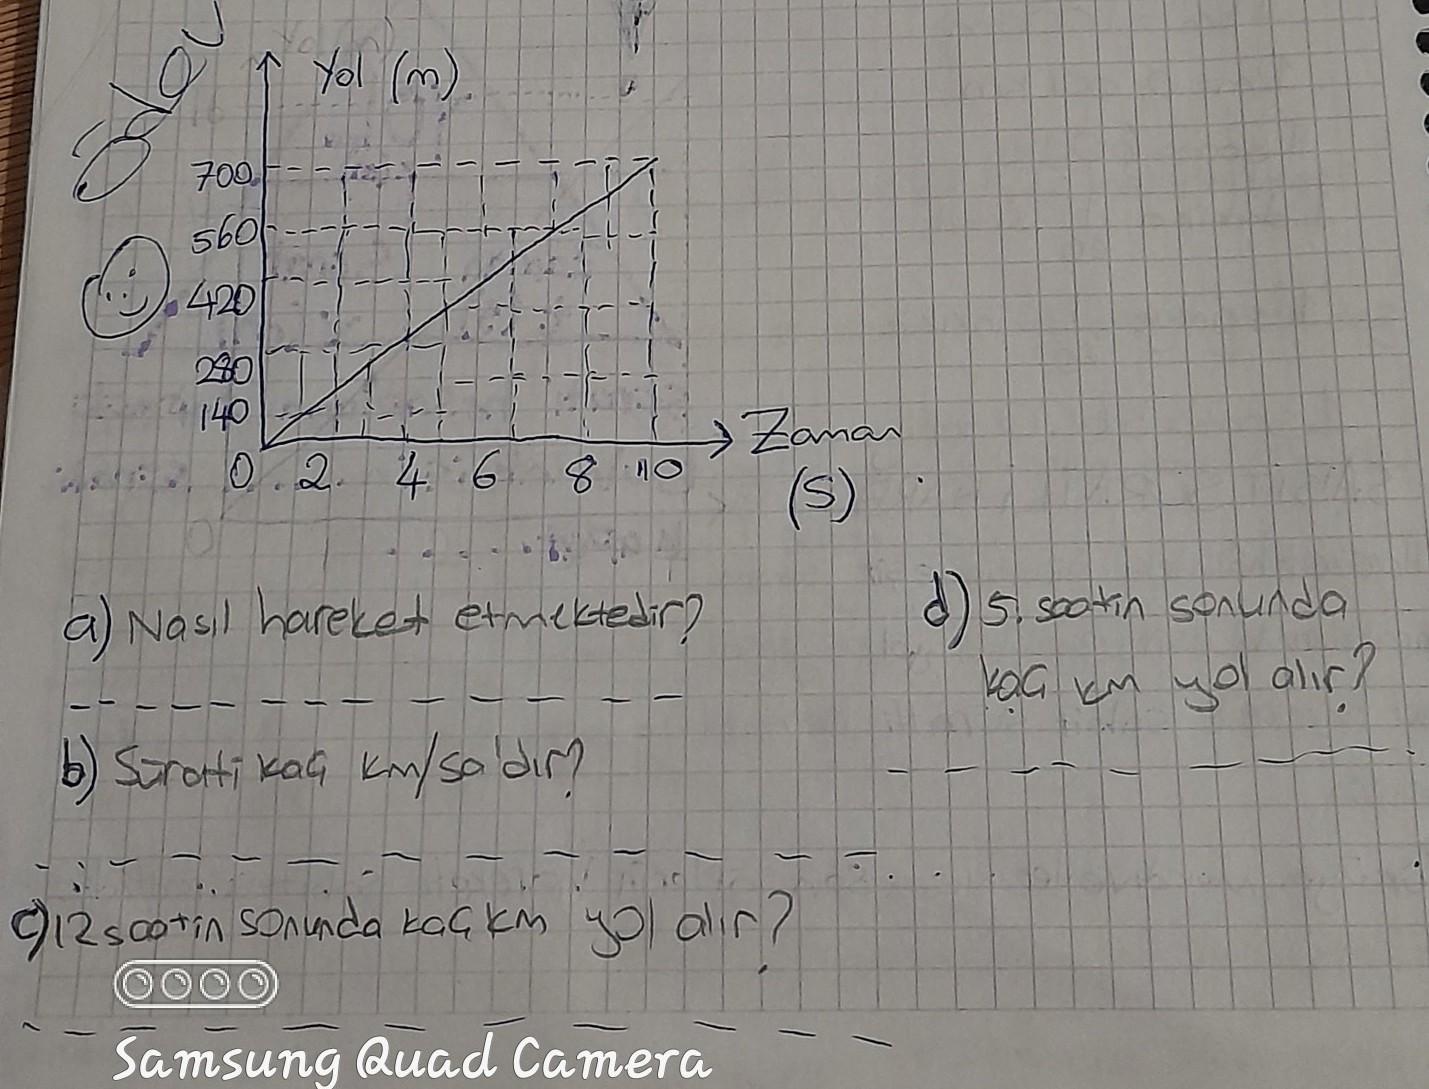 Yol (m)
700
560
420
280
140
0 2 4 6 8 10
Zaman
(S)
a) Nasıl hareket etmektedir?
b) Süratti kaç km/sa'dır?
c) 12 saatin sonunda kaç km yol alır?
d) 5. saatin sonunda
kaç km yol alır?
Samsung Quad Camera